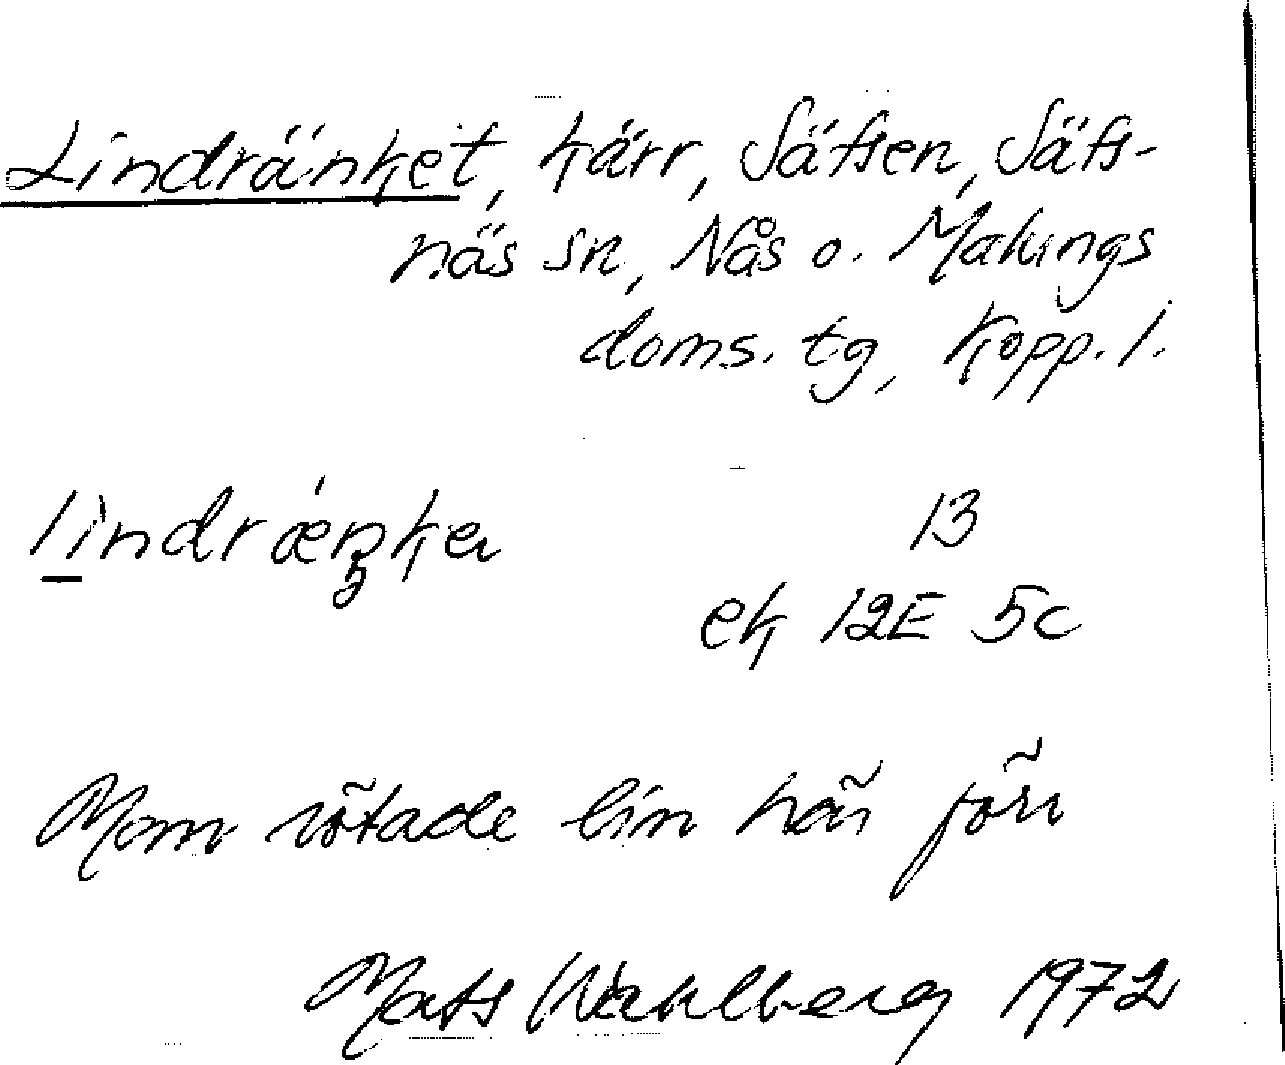 Lindränket, kärr, Säfsen, Säfs-
näs sn, Nås o. Malungs
doms. tg, Kopp. l.
lindræŋker
13
ek 12E 5c
Man rötade lin här förr
Mats Wahlberg 1972